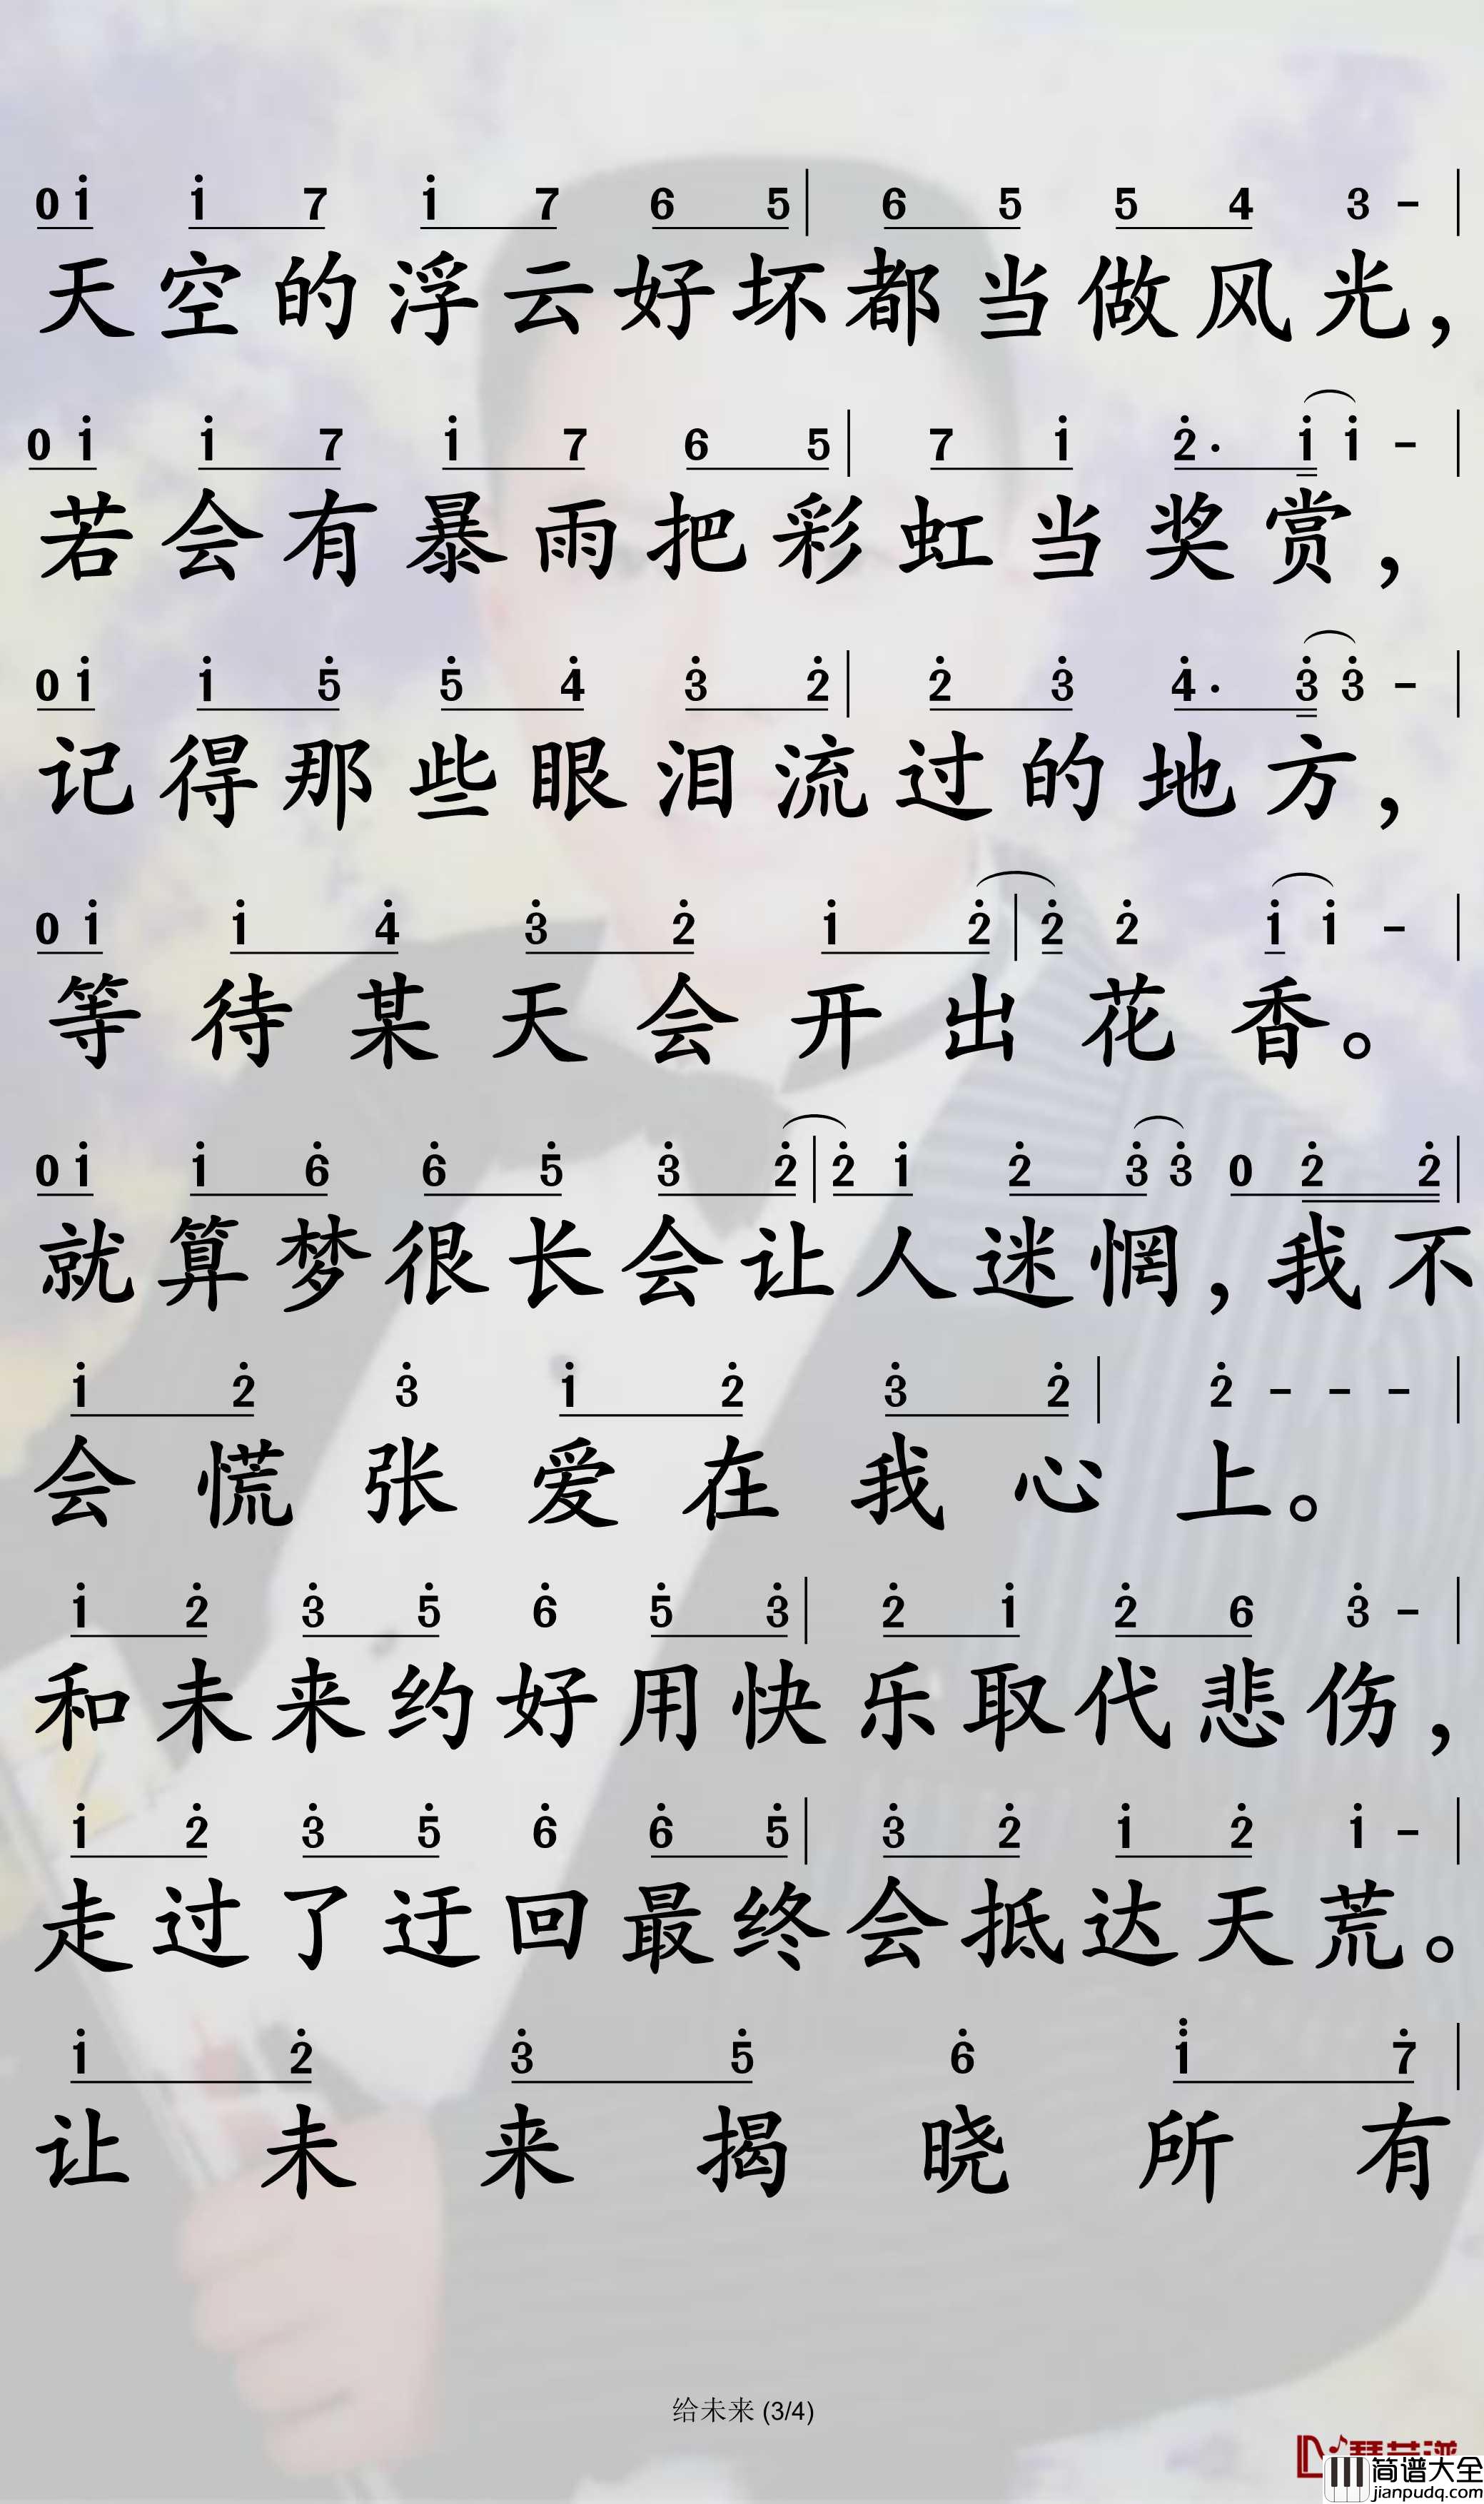 0 1̇ 1̇ 7 1̇ 7 6 5 | 6 5 5 4 3 - |
天空的浮云好坏都当做风光，
0 1̇ 1̇ 7 1̇ 7 6 5 | 7 1̇ 2̇· 1̇ 1̇ - |
若会有暴雨把彩虹当奖赏，
0 1̇ 1̇ 5̇ 5̇ 4̇ 3̇ 2̇ | 2̇ 3̇ 4̇· 3̇ 3̇ - |
记得那些眼泪流过的地方，
0 1̇ 1̇ 4̇ 3̇ 2̇ 1̇ 2̇ | 2̇ 2̇ 1̇ 1̇ - |
等待某天会开出花香。
0 1̇ 1̇ 6̇ 6̇ 5̇ 3̇ 2̇ | 2̇ 1̇ 2̇ 3̇ 3̇ 0 2̇ 2̇ |
就算梦很长会让人迷惘，我不
1̇ 2̇ 3̇ 1̇ 2̇ 3̇ 2̇ | 2̇ - - - |
会慌张爱在我心上。
1̇ 2̇ 3̇ 5̇ 6̇ 5̇ 3̇ | 2̇ 1̇ 2̇ 6 3̇ - |
和未来约好用快乐取代悲伤，
1̇ 2̇ 3̇ 5̇ 6̇ 6̇ 5̇ | 3̇ 2̇ 1̇ 2̇ 1̇ - |
走过了迂回最终会抵达天荒。
1̇ 2̇ 3̇ 5̇ 6̇ 1̈ 7̇ |
让未来揭晓所有
给未来 (3/4)
简谱大全
jianpudq.com